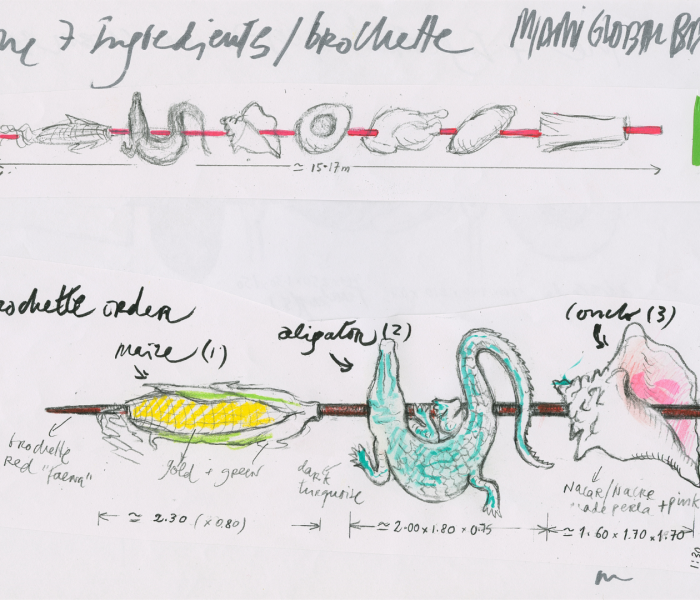 7 Ingredients / brochette
MIAMI GLOBAL
≃ 15-17m
brochette order
maize (1)
aligator (2)
conch (3)
brochette
red "faena"
gold + green
dark
turquoise
Nacar/Nacre
perla + pink
≃ 2.30 (x 0.80)
≃ 2.00 x 1.80 x 0.75
≃ 1.60 x 1.70 x 1.70
1:30